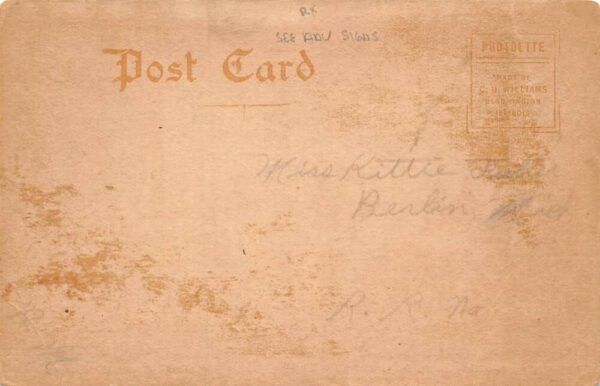 RX
SEE ADV SIGNS
Post Card
PHOTOETTE
MADE BE
C. U. WILLIAMS
BLOOMINGTON
ILLINOIS
Miss Kittie
Berlin, Mich
R. R. No